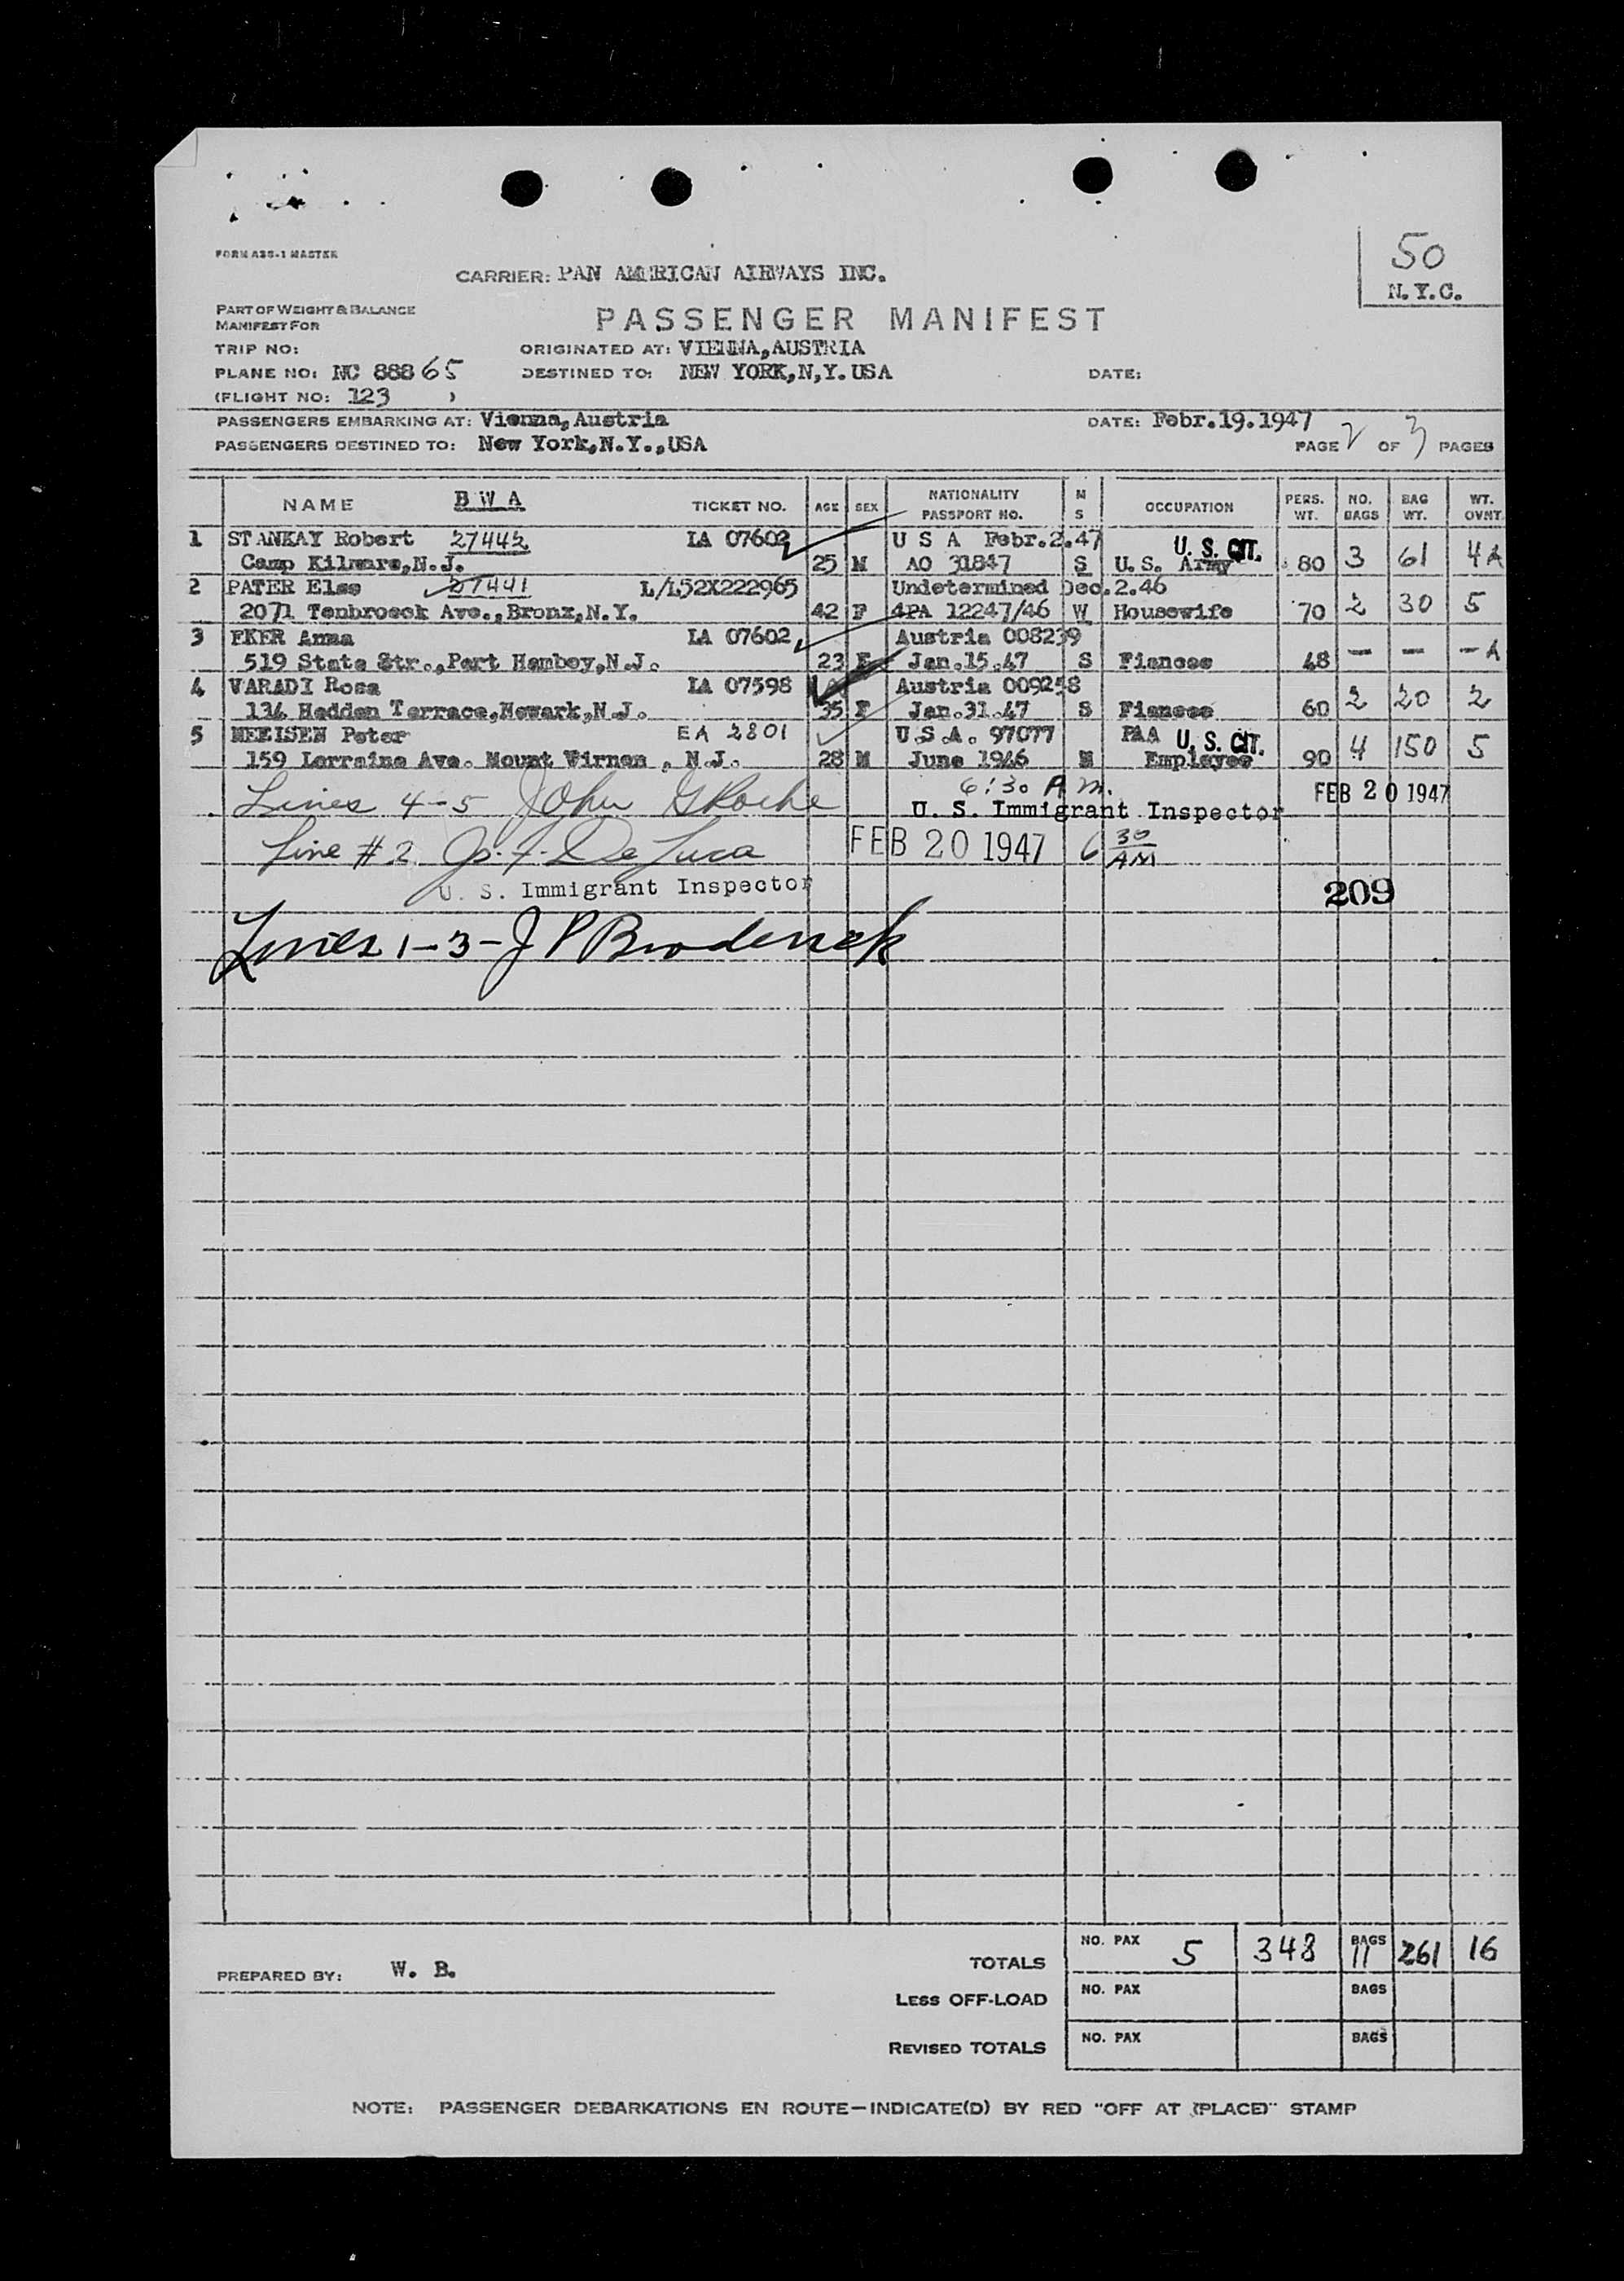 FORM A35-1 MASTER
50
N.Y.C.
CARRIER: PAN AMERICAN AIRWAYS INC.
PART OF WEIGHT & BALANCE
MANIFEST FOR
PASSENGER MANIFEST
TRIP NO: ORIGINATED AT: VIENNA, AUSTRIA
PLANE NO: NC 88865 DESTINED TO: NEW YORK,N,Y.USA DATE:
(FLIGHT NO: 123 )
PASSENGERS EMBARKING AT: Vienna, Austria DATE: Febr.19.1947
PASSENGERS DESTINED TO: New York,N.Y.,USA PAGE 2 OF 3 PAGES
NAME B W A TICKET NO. AGE SEX NATIONALITY PASSPORT NO. M S OCCUPATION PERS. WT. NO. BAGS BAG WT. WT. OVNT.
1 STANKAY Robert 27442 LA 07602 U S A Febr.2.47 U. S. CIT.
Camp Kilmare,N.J. 25 M AO 31847 S U.S. Army 80 3 61 4A
2 PATER Else 27441 L/L52X222965 Undetermined Dec.2.46
2071 Tenbroeck Ave.,Bronx,N.Y. 42 F 4PA 12247/46 W Housewife 70 2 30 5
3 EKER Anna LA 07602 Austria 008239
519 State Str.,Port Hamboy,N.J. 23 F Jan.15.47 S Fiancee 48 — — — A
4 VARADI Rosa LA 07598 Austria 009258
134 Hedden Terrace,Newark,N.J. 35 F Jan.31.47 S Fiancee 60 2 20 2
5 NEEISEN Peter EA 2801 U.S.A. 97077 PAA U. S. CIT.
159 Lorraine Ave. Mount Virnen , N.J. 28 M June 1946 M Employee 90 4 150 5
Lines 4-5 John G Roche 6:30 A m. FEB 20 1947
U. S. Immigrant Inspector
Line #2 Jo. F. De Luca FEB 20 1947 6 30 AM
U. S. Immigrant Inspector 209
Lines 1-3-J P Broderick
TOTALS NO. PAX 5 348 BAGS 11 261 16
PREPARED BY: W. B.
LESS OFF-LOAD NO. PAX BAGS
REVISED TOTALS NO. PAX BAGS
NOTE: PASSENGER DEBARKATIONS EN ROUTE—INDICATE(D) BY RED "OFF AT (PLACE)" STAMP